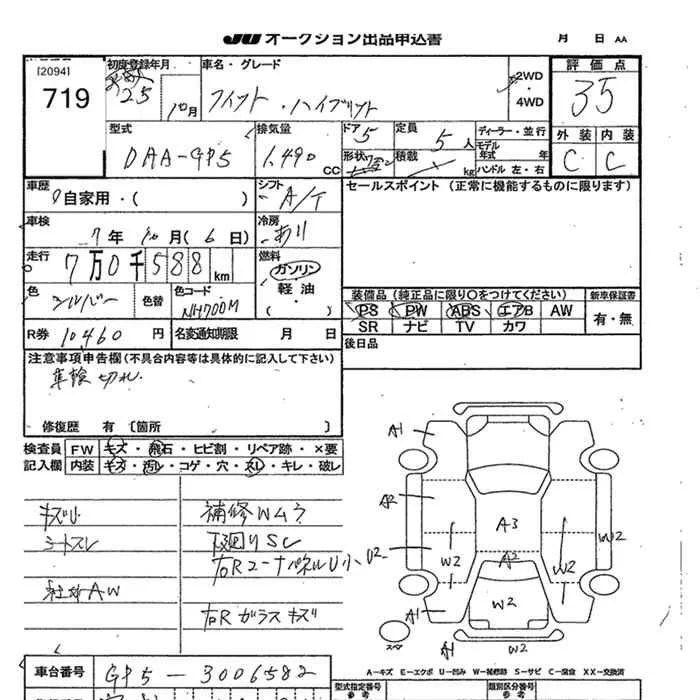 JU オークション出品申込書 月 日 AA
[2094]
719
初度登録年月
25 10月
車名・グレード
フィット・ハイブリット
2WD
・
4WD
評価点
35
外装 内装
C C
型式
DAA-GP5
排気量
1,490 CC
ドア
5
形状 ワゴン
定員
5 人
積載 kg
ディーラー・並行
モデル年式 年
ハンドル 左・右
車歴
自家用・( )
シフト
A/T
セールスポイント(正常に機能するものに限ります)
車検
7年 10月(6日)
冷房
あり
走行
7万0千588km
燃料
ガソリン
軽油
( )
色
シルバー
色替
色コード
NH700M
装備品(純正品に限り○をつけてください)
新車保証書
PS PW ABS エアB AW
有・無
SR ナビ TV カワ
R券 10460円
名変通知期限 月 日
後日品
注意事項申告欄(不具合内容等は具体的に記入して下さい)
車検切れ.
修復歴 有〔箇所 〕
検査員 FW キズ・飛石・ヒビ割・リペア跡・×要
記入欄 内装 キズ・汚レ・コゲ・穴・スレ・キレ・破レ
キズU
シートスレ
社外AW
補修Wムラ
下廻りSC
右Rコーナパネル U小
右Rガラスキズ
A1
A2
U2
A3
A2
W2
W2
W2
W2
A1
A1
W2
スペア
A-キズ E-エクボ U-凹み W-補修跡 S-サビ C-腐食 XX-交換済
車台番号
GP5-3006582
型式指定番号
参考
類別区分番号
参考